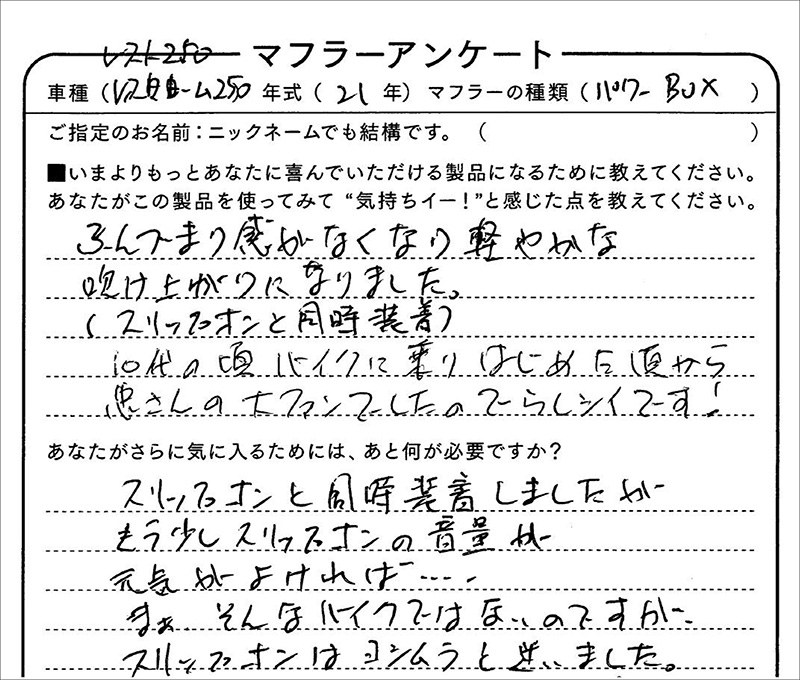 レスト250
マフラーアンケート
車種(　ホーム250 年式( 21 年) マフラーの種類( パワー BOX )
ご指定のお名前:ニックネームでも結構です。( )
■いまよりもっとあなたに喜んでいただける製品になるために教えてください。
あなたがこの製品を使ってみて“気持ちイー!”と感じた点を教えてください。
ふんづまり感がなくなり軽やかな
吹け上がりになりました。
(スリップオンと同時装着)
10代の頃バイクに乗りはじめた頃から
忠さんの大ファンでしたのでうれしイイです!
あなたがさらに気に入るためには、あと何が必要ですか?
スリップオンと同時装着しましたが
もう少しスリップオンの音量が
元気がよければ・・・・
まぁ、そんなバイクではないのですが、
スリップオンはヨシムラと迷いました。